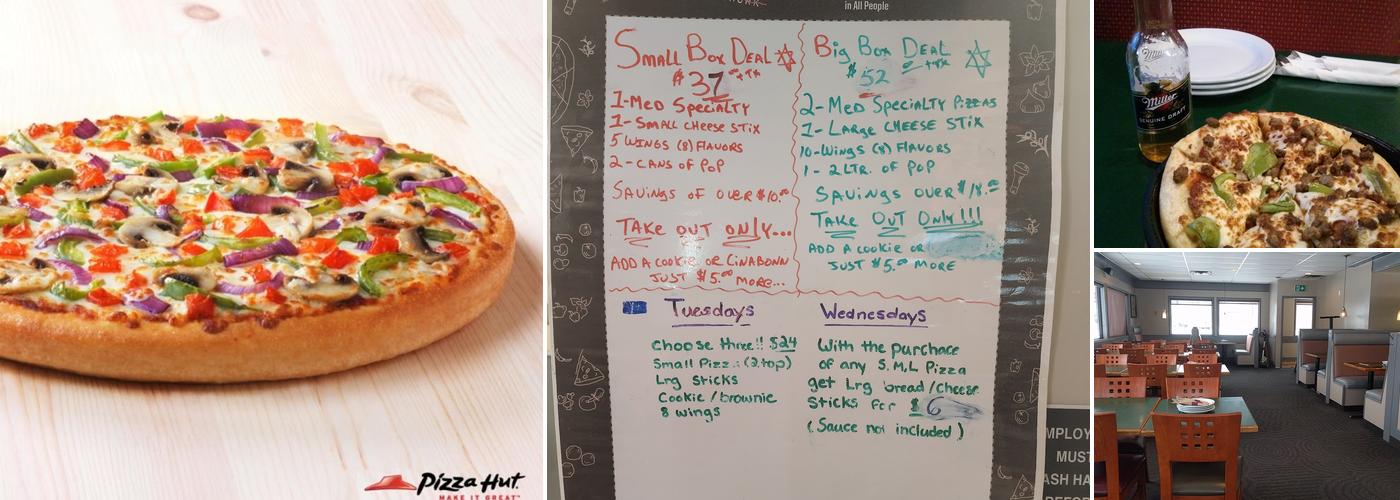 Pizza Hut
MAKE IT GREAT™
in All People
SMALL BOX DEAL
$37.00 +TX
1-MED SPECIALTY
1-SMALL CHEESE STIX
5 WINGS (8) FLAVORS
2-CANS OF POP
SAVINGS OF OVER $10.00
TAKE OUT ONLY...
ADD A COOKIE OR CINABONN
JUST $5.00 MORE...
BIG BOX DEAL
$52
2-MED SPECIALTY PIZZAS
1-LARGE CHEESE STIX
10-WINGS (8) FLAVORS
1-2LTR. OF POP
SAVINGS OVER $18.00
TAKE OUT ONLY!!!
ADD A COOKIE OR
JUST $5.00 MORE
Tuesdays
Choose three!! $24
Small Pizz (2.top)
Lrg Sticks
Cookie/brownie
8 wings
Wednesdays
With the purchace
of any S.M.L Pizza
get Lrg bread/cheese
Sticks for $6
(Sauce not included)
EMPLOY
MUST
ASH HA
BEFOR
Miller
GENUINE DRAFT